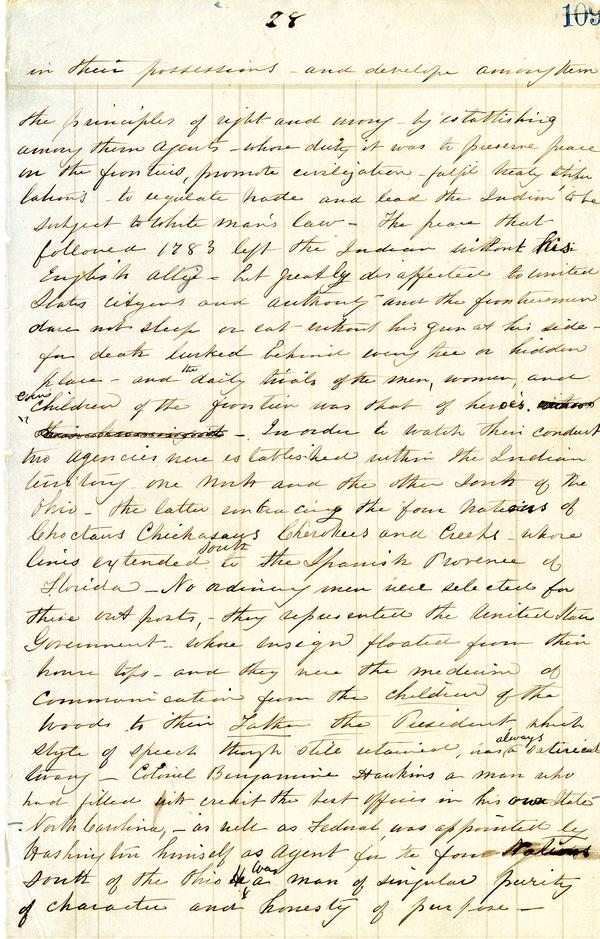 28
109
in their possessions - and develope among them
the principles of right and wrong - by establishing
among them Agents - whose duty it was to preserve peace
on the frontiers, promote civilization - fulfil treaty stipu
lations - to regulate trade and lead the Indian to be
subject to white man's law - The peace that
followed 1783 left the Indian without his
English ally - but greatly disaffected to United
States citizens and authority and the frontiersmen
dare not sleep or eat without his gun at his side -
for death lurked behind every tree or hidden
place - and the daily trials of the men, women, and
even
children of the frontier was that of heroes.
- In order to watch their conduct
two agencies were established within the Indian
territory one North and the other South of the
Ohio - the latter embracing the four Nations of
Choctaws Chickasaws Cherokees and Creeks - whose
lines extended South to the Spanish Provence of
Florida - No ordinary men were selected for
these out posts, - they represented the United States
Government - whose ensign floated from their
house tops - and they were the medium of
communication from the children of the
woods to their Father the President which
style of speech though still retained, was always a satirical
irony - Colonel Benjamine Hawkins a man who
had filled with credit the best offices in his own State
North Carolina, - as well as Federal, was appointed by
Washington himself as Agent for the four Nations
South of the Ohio He was a man of singular purity
of character and honesty of purpose -